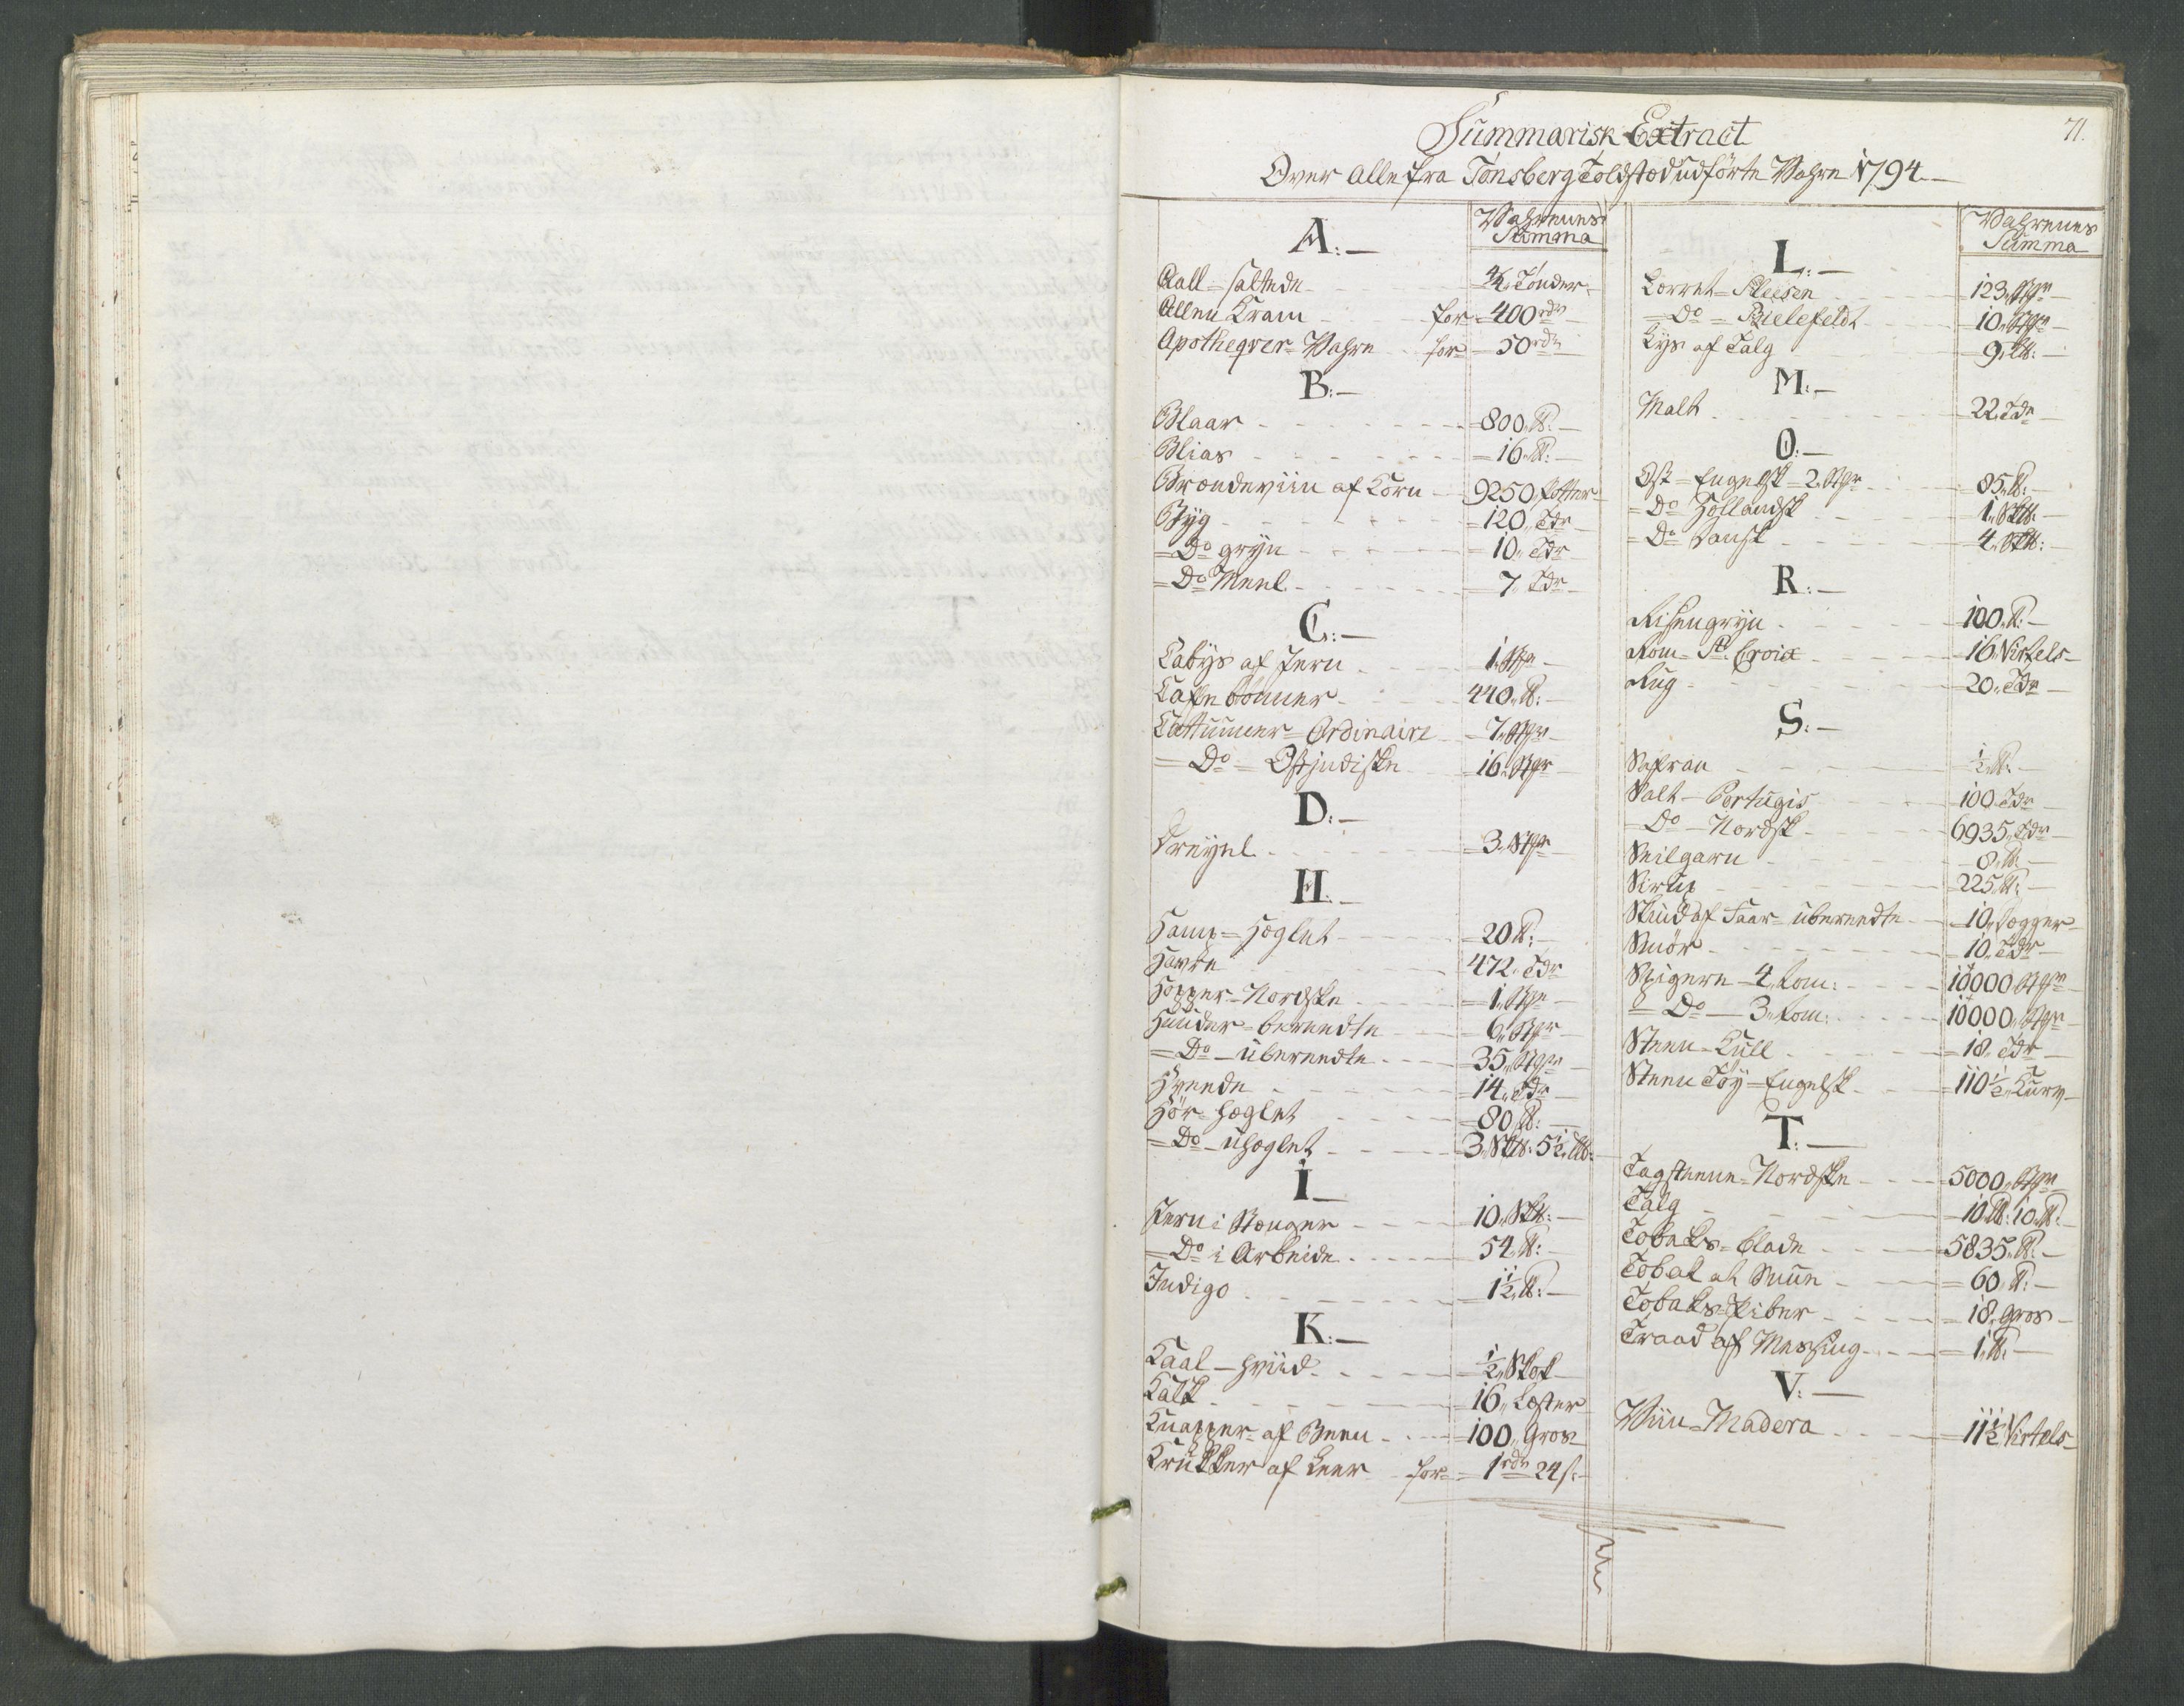 71.
Summarisk Extract
Over Alle fra Tønsberg Toldstæd udförte Vahre 1794.
Vahrenes Summa
A:
Aall = saltede 4/4 Tønder
Allen Kram for 400 rdr
Apotheqver Vahre for 50 rdr
B:
Blaar 800 lb:
Blias 16 lb:
Brændeviin af Korn 9250 Potter
Byg 120 Tdr
= Do gryn 10 Tdr
= Do Meel 7 Tdr
C:
Cabys af Jern 1 Stk
Caffe bönner 440 lb:
Cattuner = Ordinaire 7 Stkr
= Do = Ostindiske 16 Stkr
D:
Dreyel 3 Stkr
H:
Hamp = Heglet 20 lb:
Havre 472 Tdr
Hopper = Nordske 1 Stk
Huuder = bereedte 6 Stkr
= Do = ubereedte 35 Stkr
Hveede 14 Tdr
Hör heglet 80 lb:
= Do uheglet 3 Sk lb: 5 1/2 lb:
I
Jern i Stænger 10 Sk lb:
= Do i Arbeide 54 lb:
Indigo 1 1/2 lb:
K:
Kaal = hviid 1/2 Skok
Kalk 16 Læster
Knapper af Been 100 Gros
Krukker af Leer for 1 rdr 24 s:
Vahrenes Summa
L:
Lærret = Slesen 123 Stkr
= Do = Bielefeldt 10 Stkr
Lys af Talg 9 lb:
M:
Malt 22 Tdr
O:
Ost = Engelsk = 2 Stkr 85 lb:
= Do Hollandsk 1 Sk lb:
= Do Dansk 4 Sk lb:
R:
Risengryn 100 lb:
Rom = St. Croix 16 Virtels
Rug 20 Tdr
S:
Safran 1/2 lb:
Salt = Portugis 100 Tdr
= Do = Nordsk 6935 Tdr
Seilgarn 8 lb:
Sirup 225 lb:
Skind af Faar = ubereedte 10 Dogger
Smör 10 Tdr
Spigere 4 Tom: 10000 Stkr
= Do 3 Tom: 10000 Stkr
Steen = Kull 18 Tdr
Steen Töy = Engelsk 110 1/2 Kurv
T:
Tagsteene = Nordske 5000 Stkr
Talg 10 lb:
Tobaks = blade 5835 lb:
Tobak at Snue 60 lb:
Tobaks = Piber 18 Gros
Traad af Messing 1 lb:
V:
Viin = Madera 11 1/2 Virtels